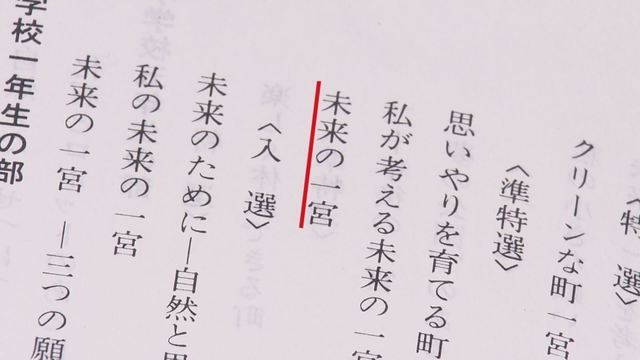 〈特 選〉
クリーンな町一宮
〈準特選〉
思いやりを育てる町
私が考える未来の一宮
未来の一宮
〈入 選〉
未来のために―自然と
私の未来の一宮
未来の一宮 ―三つの願
学校一年生の部